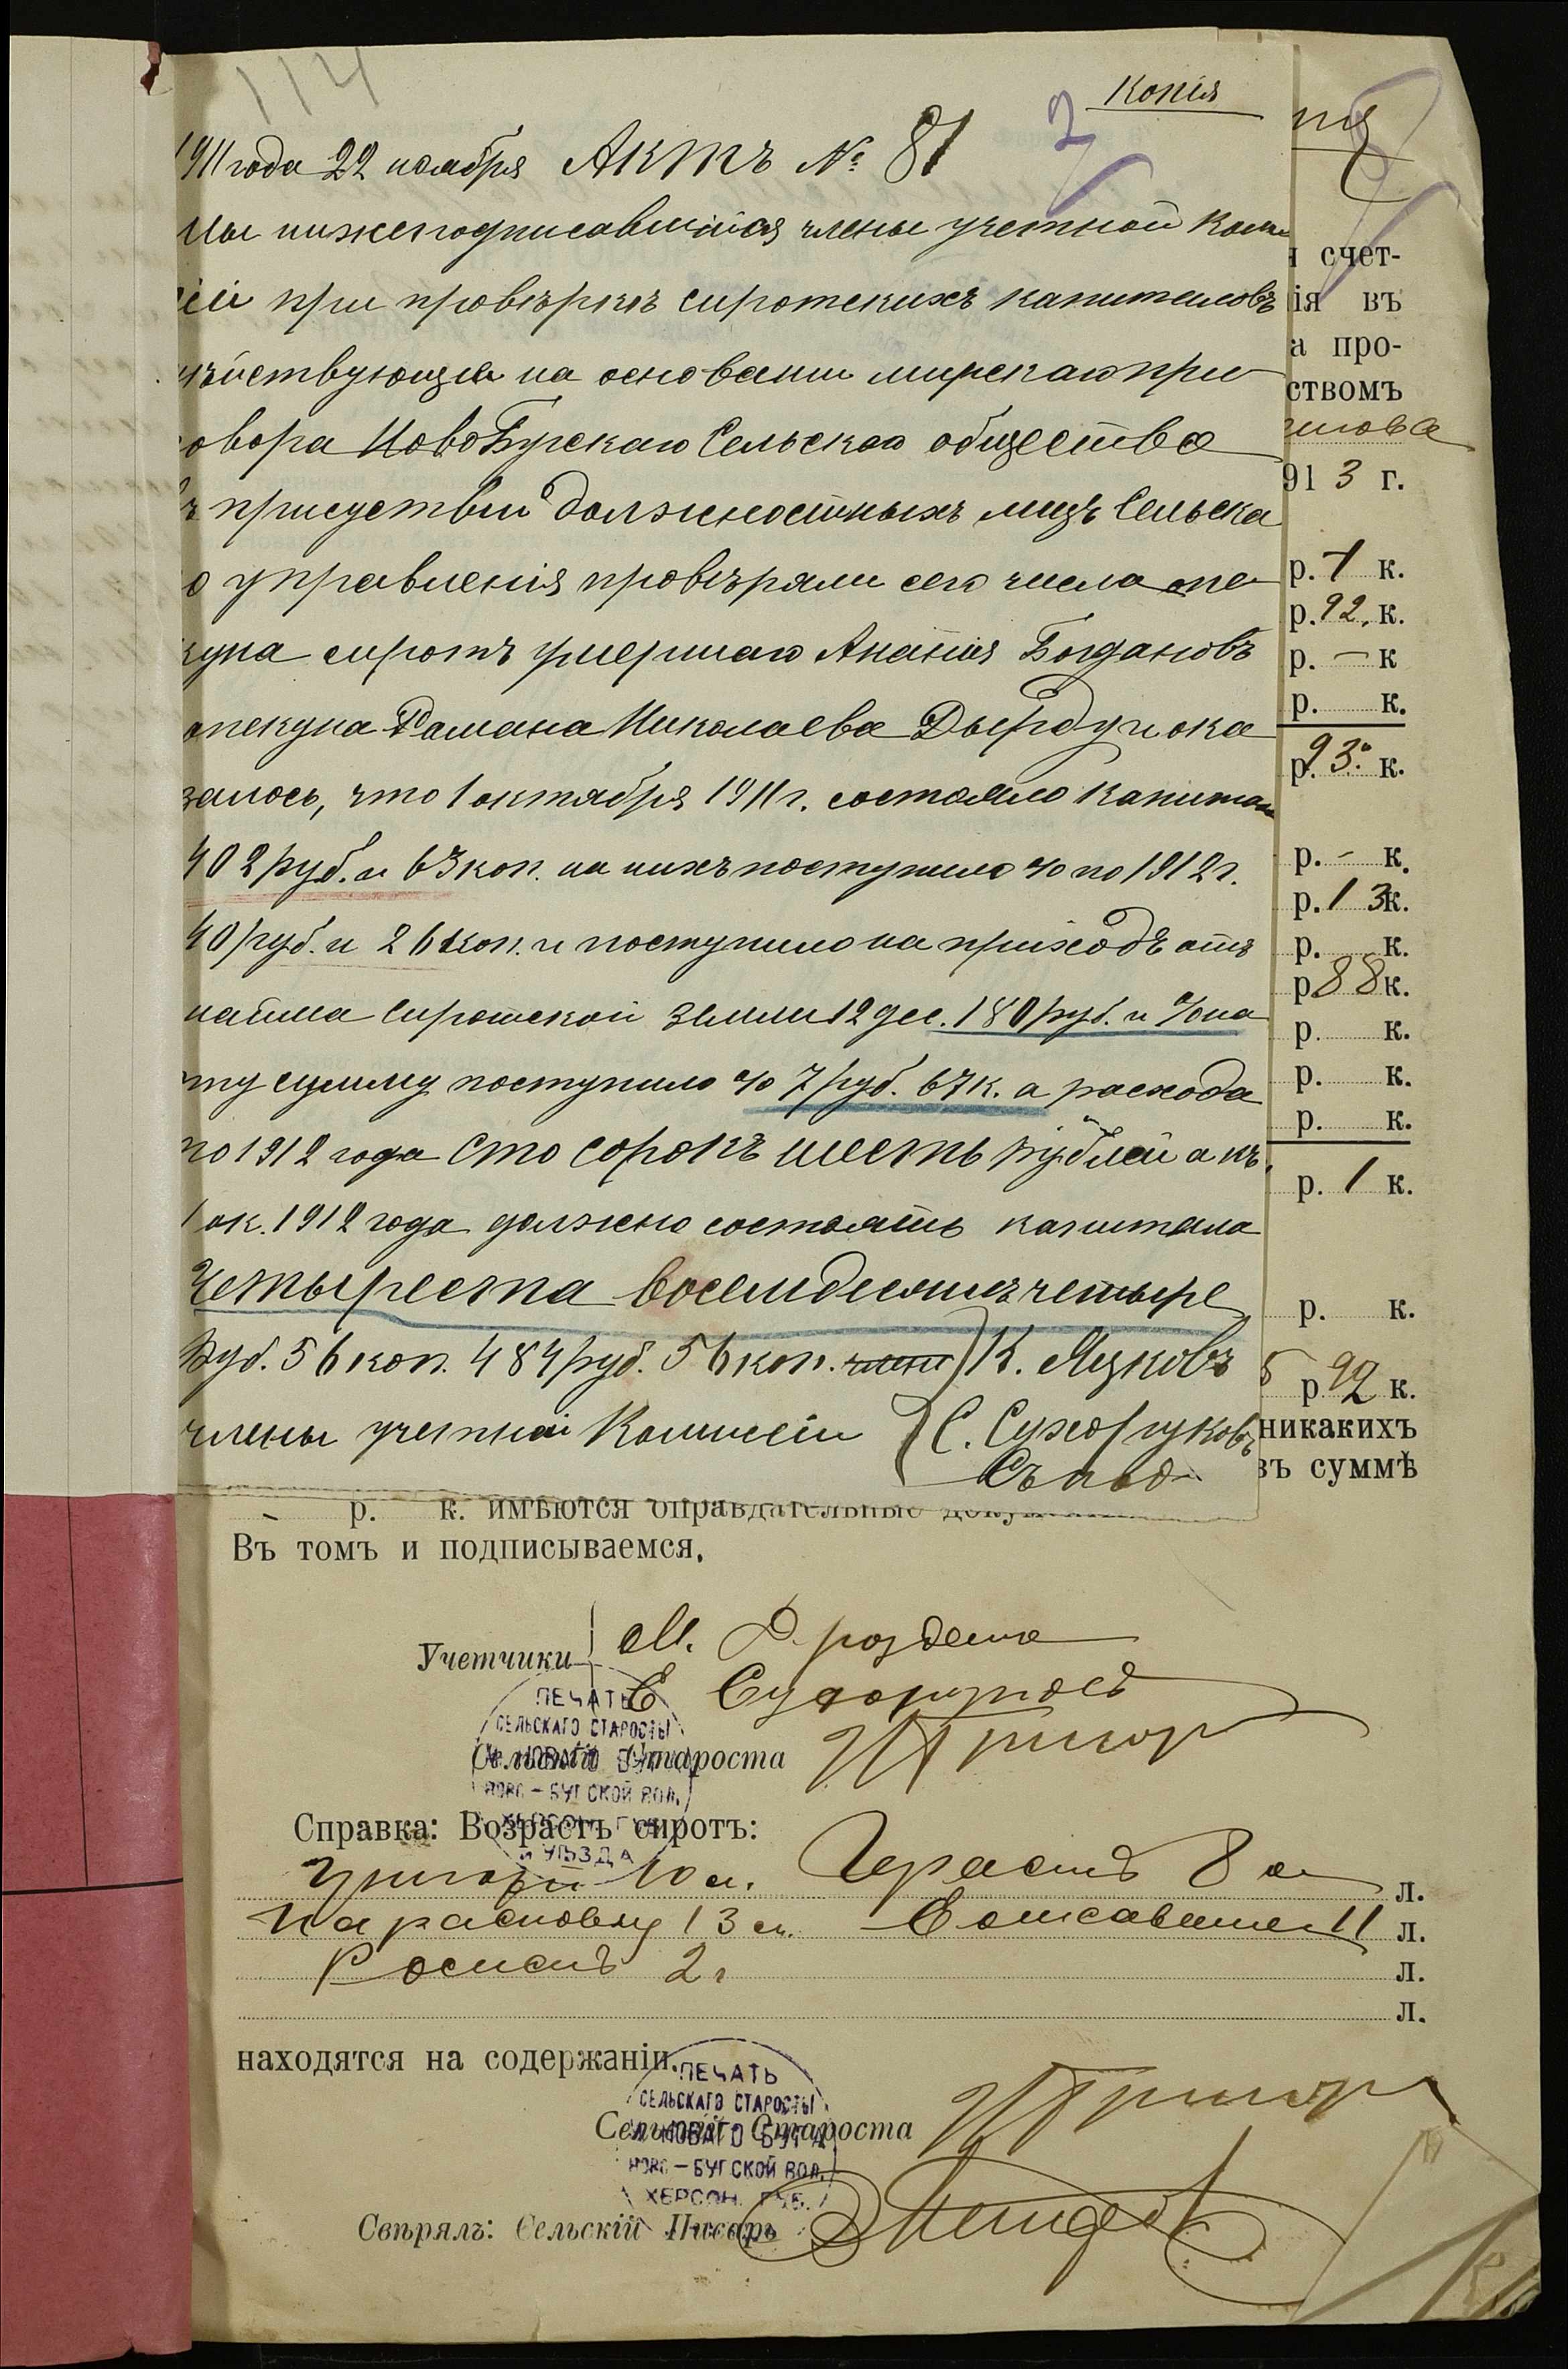 114
Копія
1911 года 22 ноября Актъ № 81
Мы нижеподписавшійся члены учетной Комм
сіи при провѣркѣ сиротскихъ капиталовъ
дѣйствующіе на основании мирскаго при
говора НовоБугскаго Сельскаго общества
въ присуствіи должностныхъ лицъ Сельска
го управленія провѣряли сего числа опе
куна сиротъ умершаго Ананія Богдановъ
опекуна Рамана Николаева Дырду и ока
залось, что 1 октября 1911 г. состояло капитал
402 руб. и 63 коп. на нихъ поступило % по 1912 г.
40 руб. и 26 коп. и поступило на приходъ отъ
найма Сиротской земли 12 дес. 180 руб. и % на
эту сумму поступило % 7 руб. 67 к. а расхода
по 1912 года Сто сорокъ шесть рублей а къ
1 ок. 1912 года должно состоять капитала
Четыреста восемдесятъ четыре
Руб. 56 коп. 484 руб. 56 коп. К. Яцковъ
члены учетной Коммисіи С. Сухоруковъ
пія
счет-
ія въ
а про-
ствомъ
нова
913 г.
р. 1 к.
р. 92 к.
р. – к
р. к.
р. 93 к.
р. - к.
р. 13 к.
р. к.
р 88 к.
р. к.
р. к.
р. к.
р. 1 к.
р. к.
р 92 к.
никакихъ
въ суммѣ
р. к. имѣются оправдательные докум
Въ томъ и подписываемся.
Учетчики М. Дрозденко
С Сухоруковъ
ПЕЧАТЬ
СЕЛЬСКАГО СТАРОСТЫ
Н. НОВАГО БУГА
НОВО-БУГСКОЙ ВОЛ.
ХЕРСОН. ГУБ.
И УѢЗДА
Сельскій Староста
Справка: Возрастъ сиротъ:
Григорій 10 л. Герасимъ 8 л.
Парасковьѣ 13 л. Елисавета 11 л.
2 г л.
л.
находятся на содержаніи.
ПЕЧАТЬ
СЕЛЬСКАГО СТАРОСТЫ
Н. НОВАГО БУГА
НОВО-БУГСКОЙ ВОЛ.
ХЕРСОН. ГУБ.
Сельскій Староста
Свѣрялъ: Сельскій Писарь